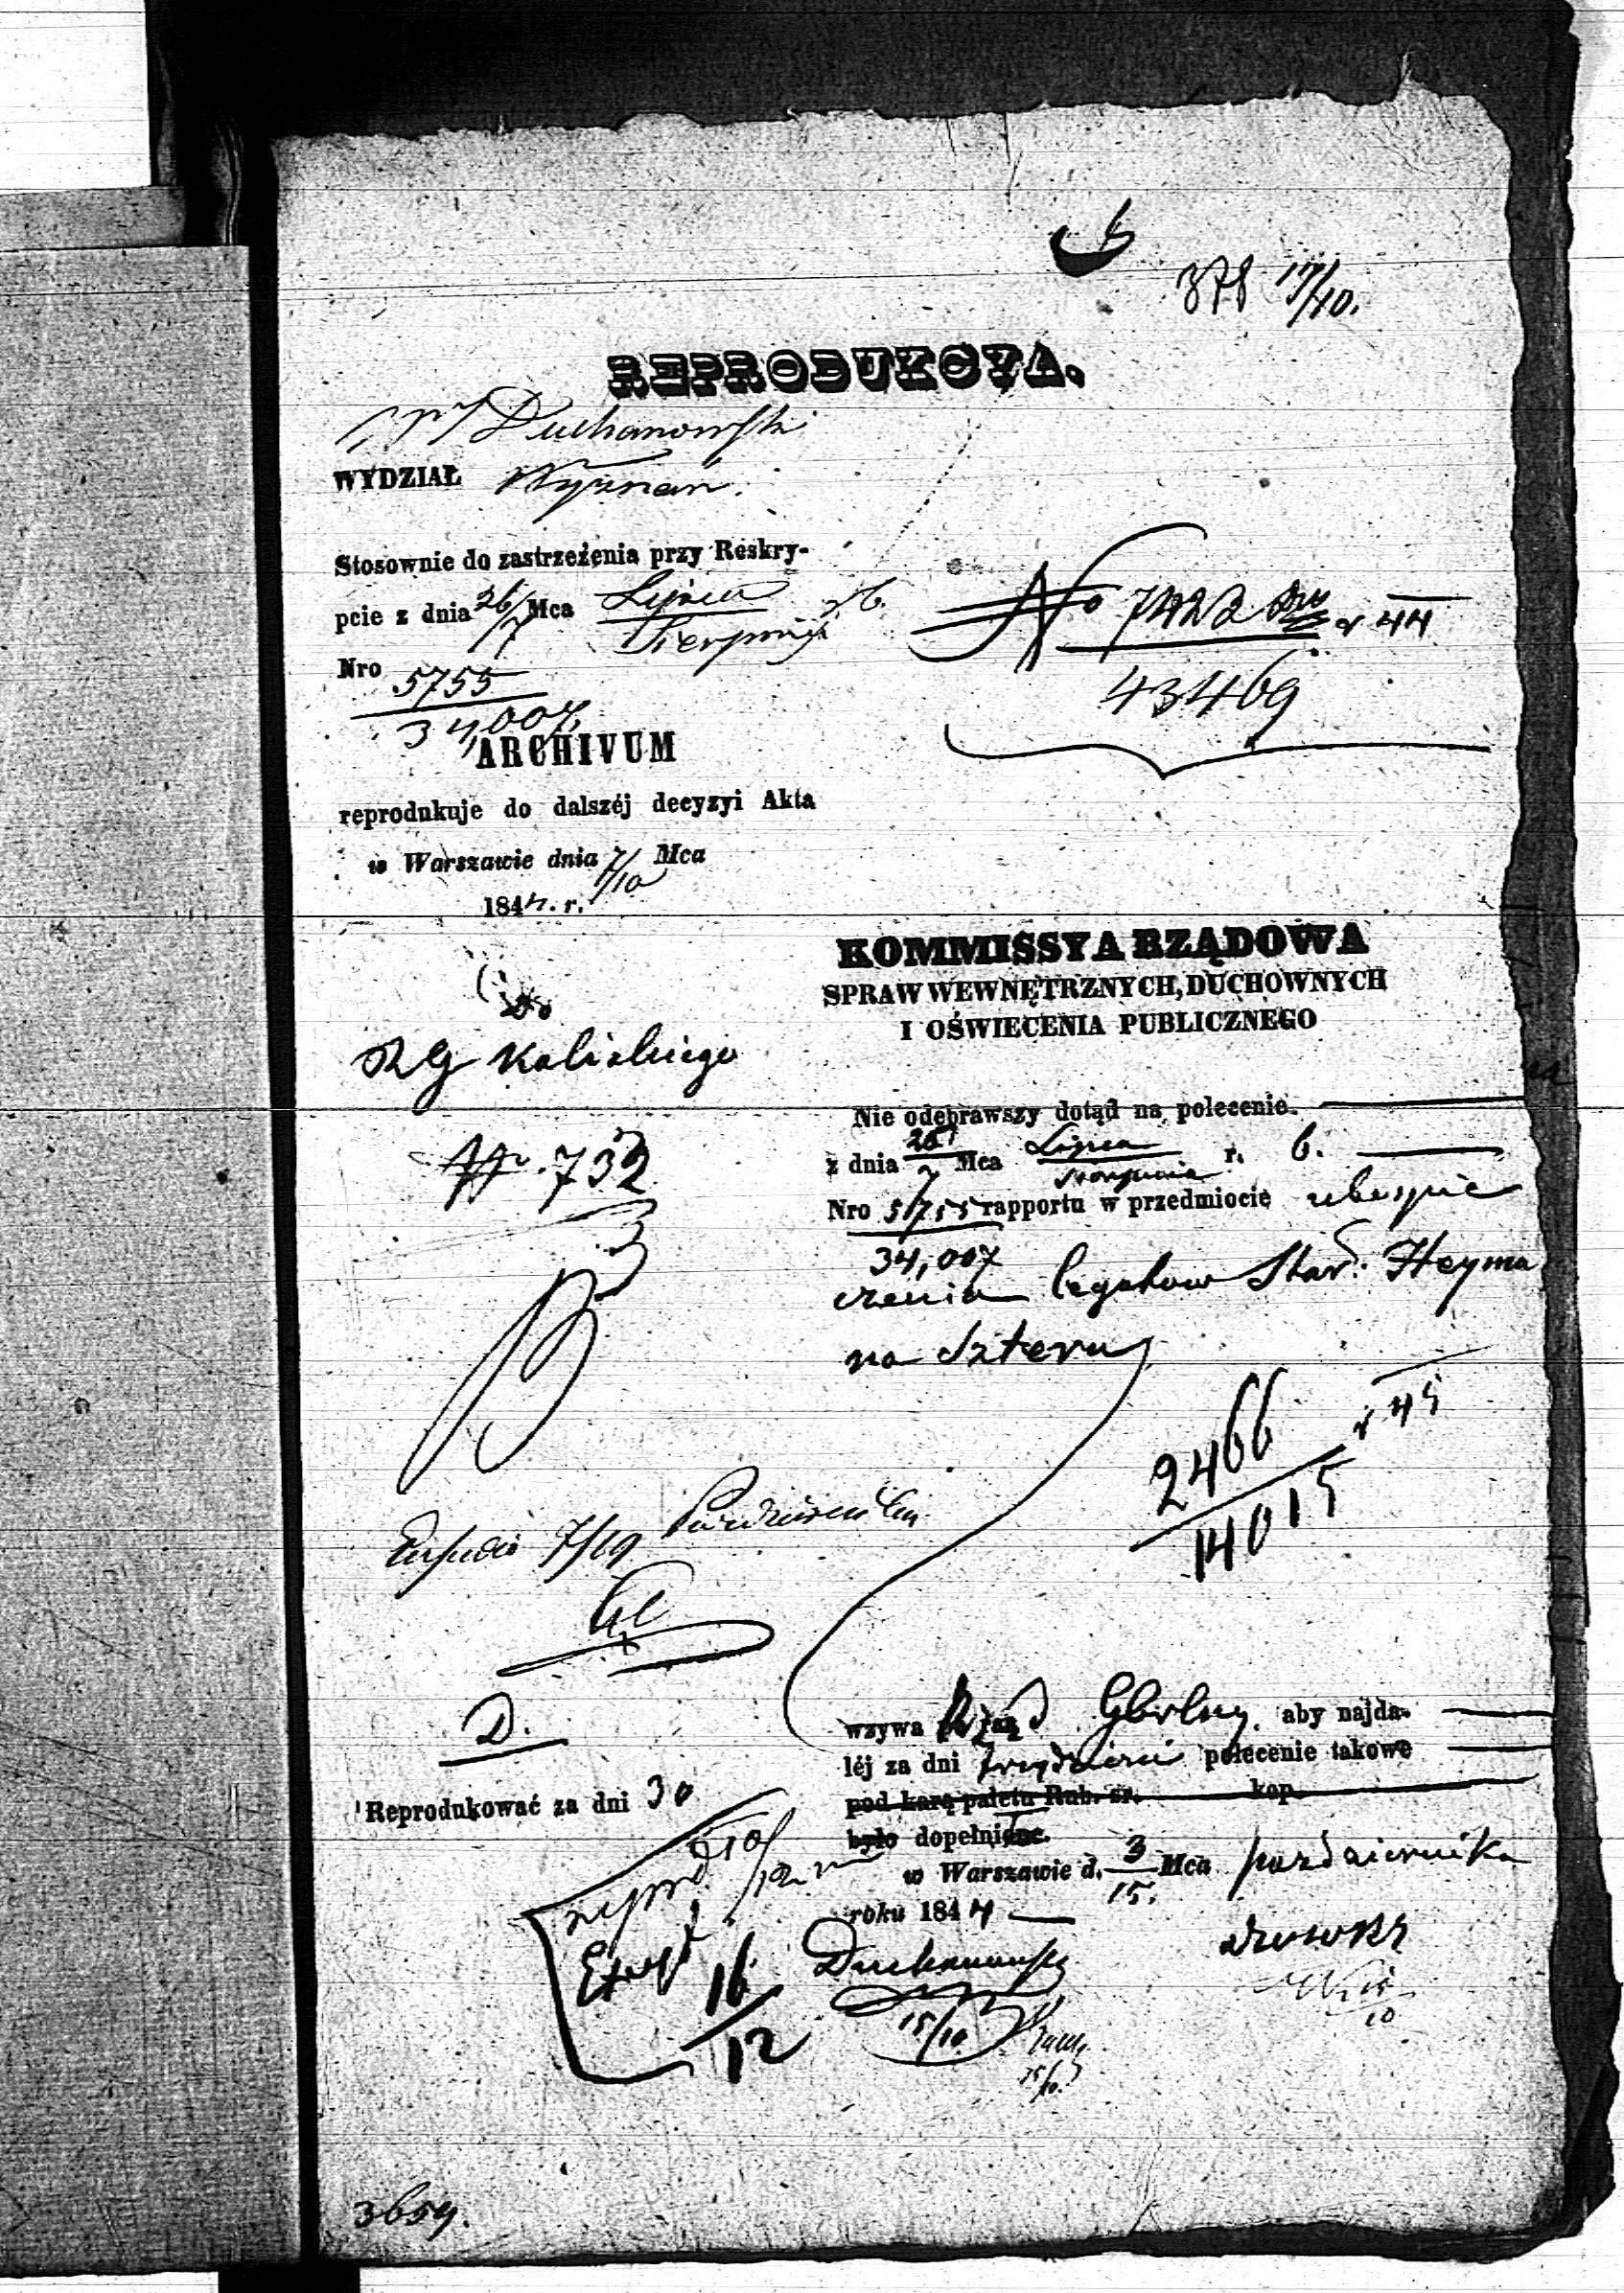 17/10.
REPRODUKCYA.
Duchanowski
WYDZIAŁ Wyznań.
Stosownie do zastrzeżenia przy Reskry-
pcie z dnia 26/7 Mca Lipca
Sierpnia r b.
Nro 5755
34,007
No 7422 r 44
43469
ARCHIVUM
reprodukuje do dalszéj decyzyi Akta
w Warszawie dnia 7/10 Mca
1844. r.
Do
RG Kaliskiego
No 732
KOMMISSYA RZĄDOWA
SPRAW WEWNĘTRZNYCH, DUCHOWNYCH
I OŚWIECENIA PUBLICZNEGO
Nie odebrawszy dotąd na polecenie
z dnia 26/7 Mca Lipca/Sierpnia r. b.
Nro 5755 rapportu w przedmiocie ubespie
34,007
czenia legatow Star: Heyma
na Szteru
2466 r 45
14015
7/19 Październik
D.
Reprodukować za dni 30
wzywa Rząd Gbrlny, aby najda-
léj za dni trzydzieści polecenie takowe
pod karą paletu Rub. sr. kop.
było dopełnione.
w Warszawie d. 3/15. Mca października
roku 1844
10/12
16/12
Duchanowski
15/10
15/10
10
3659.